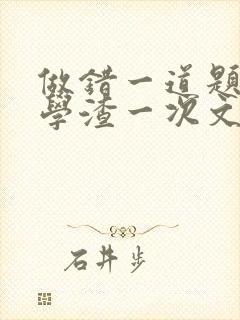 做錯一道題
學渣一次文
石井步